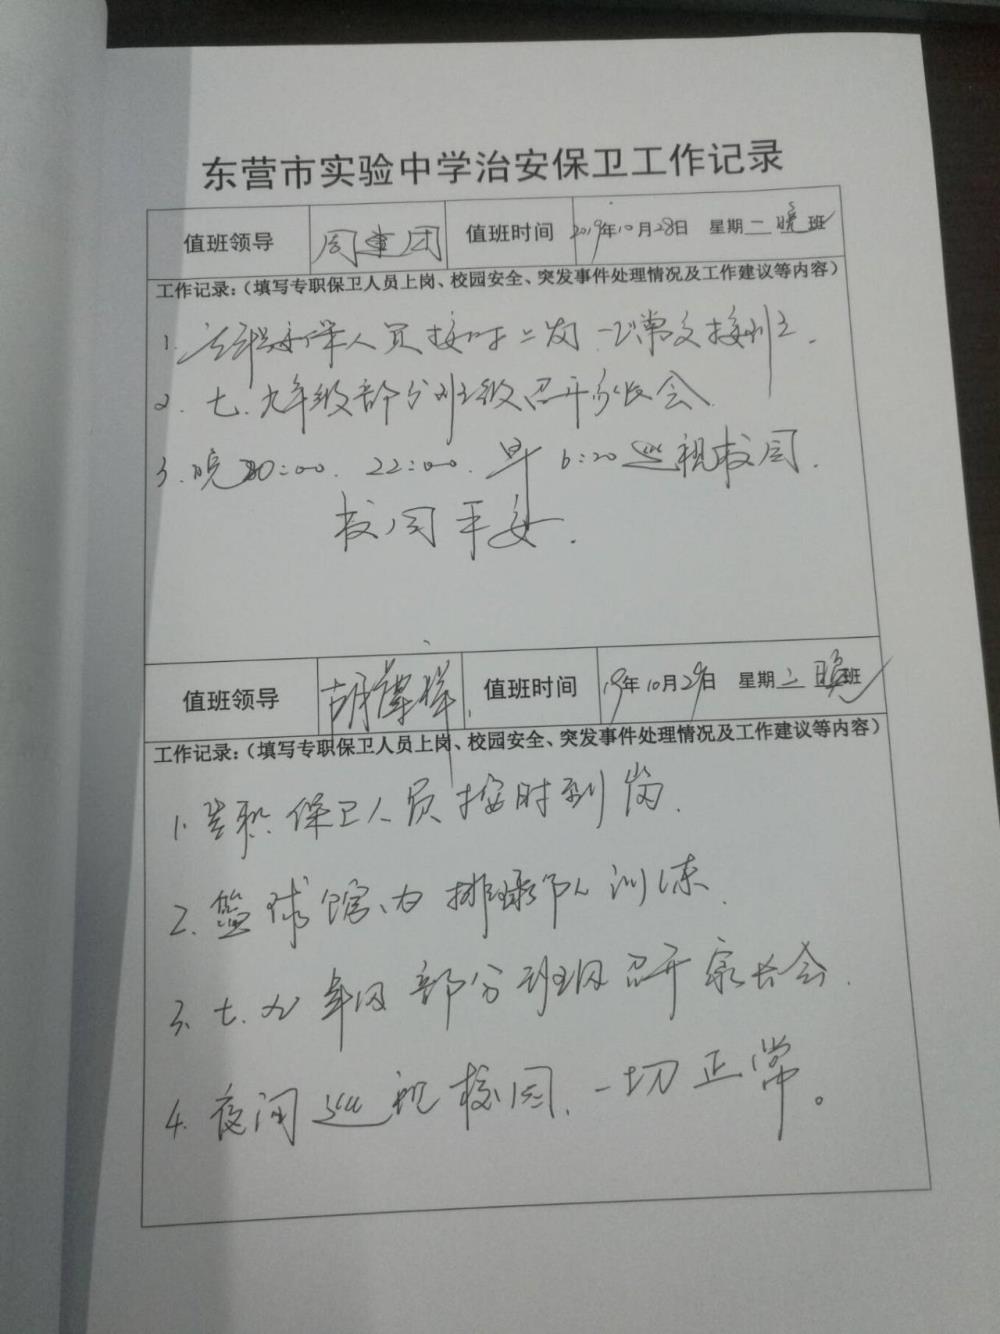 东营市实验中学治安保卫工作记录
值班领导 周建团 值班时间 2019年10月28日 星期二晚班
工作记录:(填写专职保卫人员上岗、校园安全、突发事件处理情况及工作建议等内容)
1. 人员 正常交接班.
2. 七.九年级部分班级召开家长会.
3. 晚20:00. 22:00. 早6:20巡视校园.
校园平安.
值班领导 胡 祥 值班时间 19年10月29日 星期二晚班
工作记录:(填写专职保卫人员上岗、校园安全、突发事件处理情况及工作建议等内容)
1. 专职保卫人员按时到岗.
2. 篮球馆内排球部队训练.
3. 七.九年级部分班级召开家长会.
4. 夜间巡视校园、一切正常。